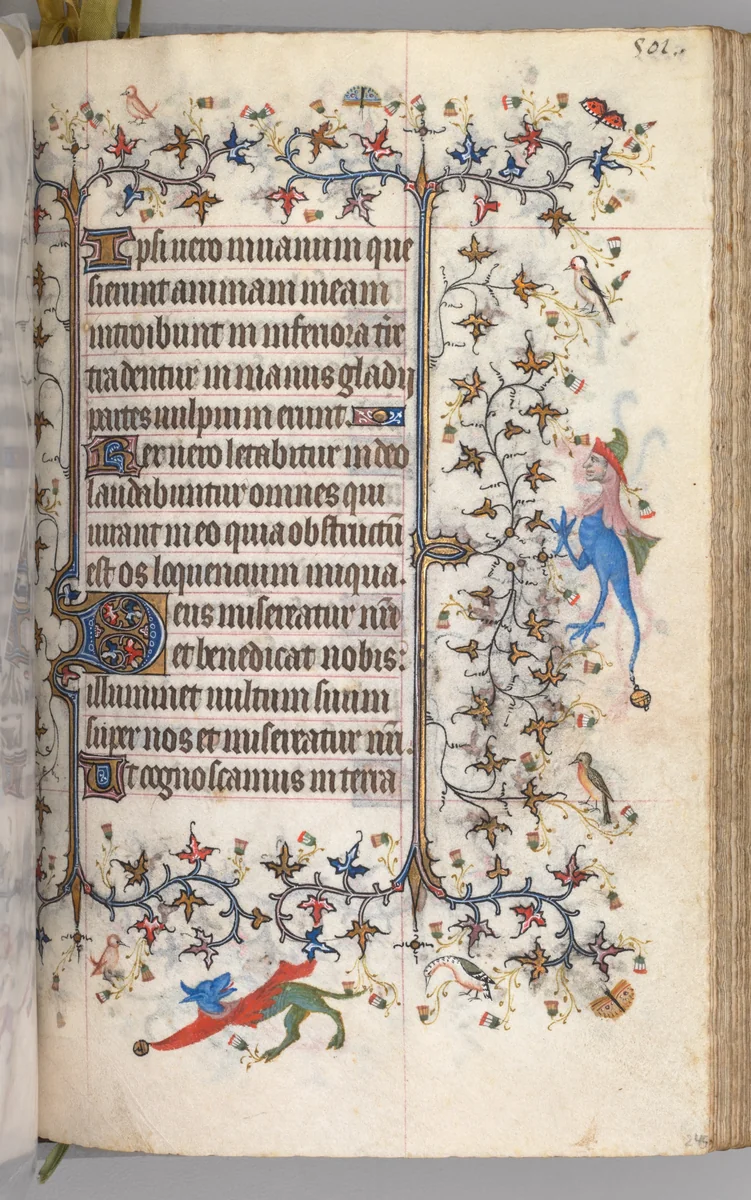 501.
Ipsi uero in uanum que
sierunt animam meam
introibunt in inferiora tr̄e
tradentur in manus gladij
partes uulpium erunt.
Rex uero letabitur in deo
laudabuntur omnes qui
iurant in eo quia obstructū
est os loquencium iniqua.
Deus misereatur nr̄i
et benedicat nobis:
illuminet uultum suum
super nos et misereatur nr̄i.
Ut cognoscamus in terra
245